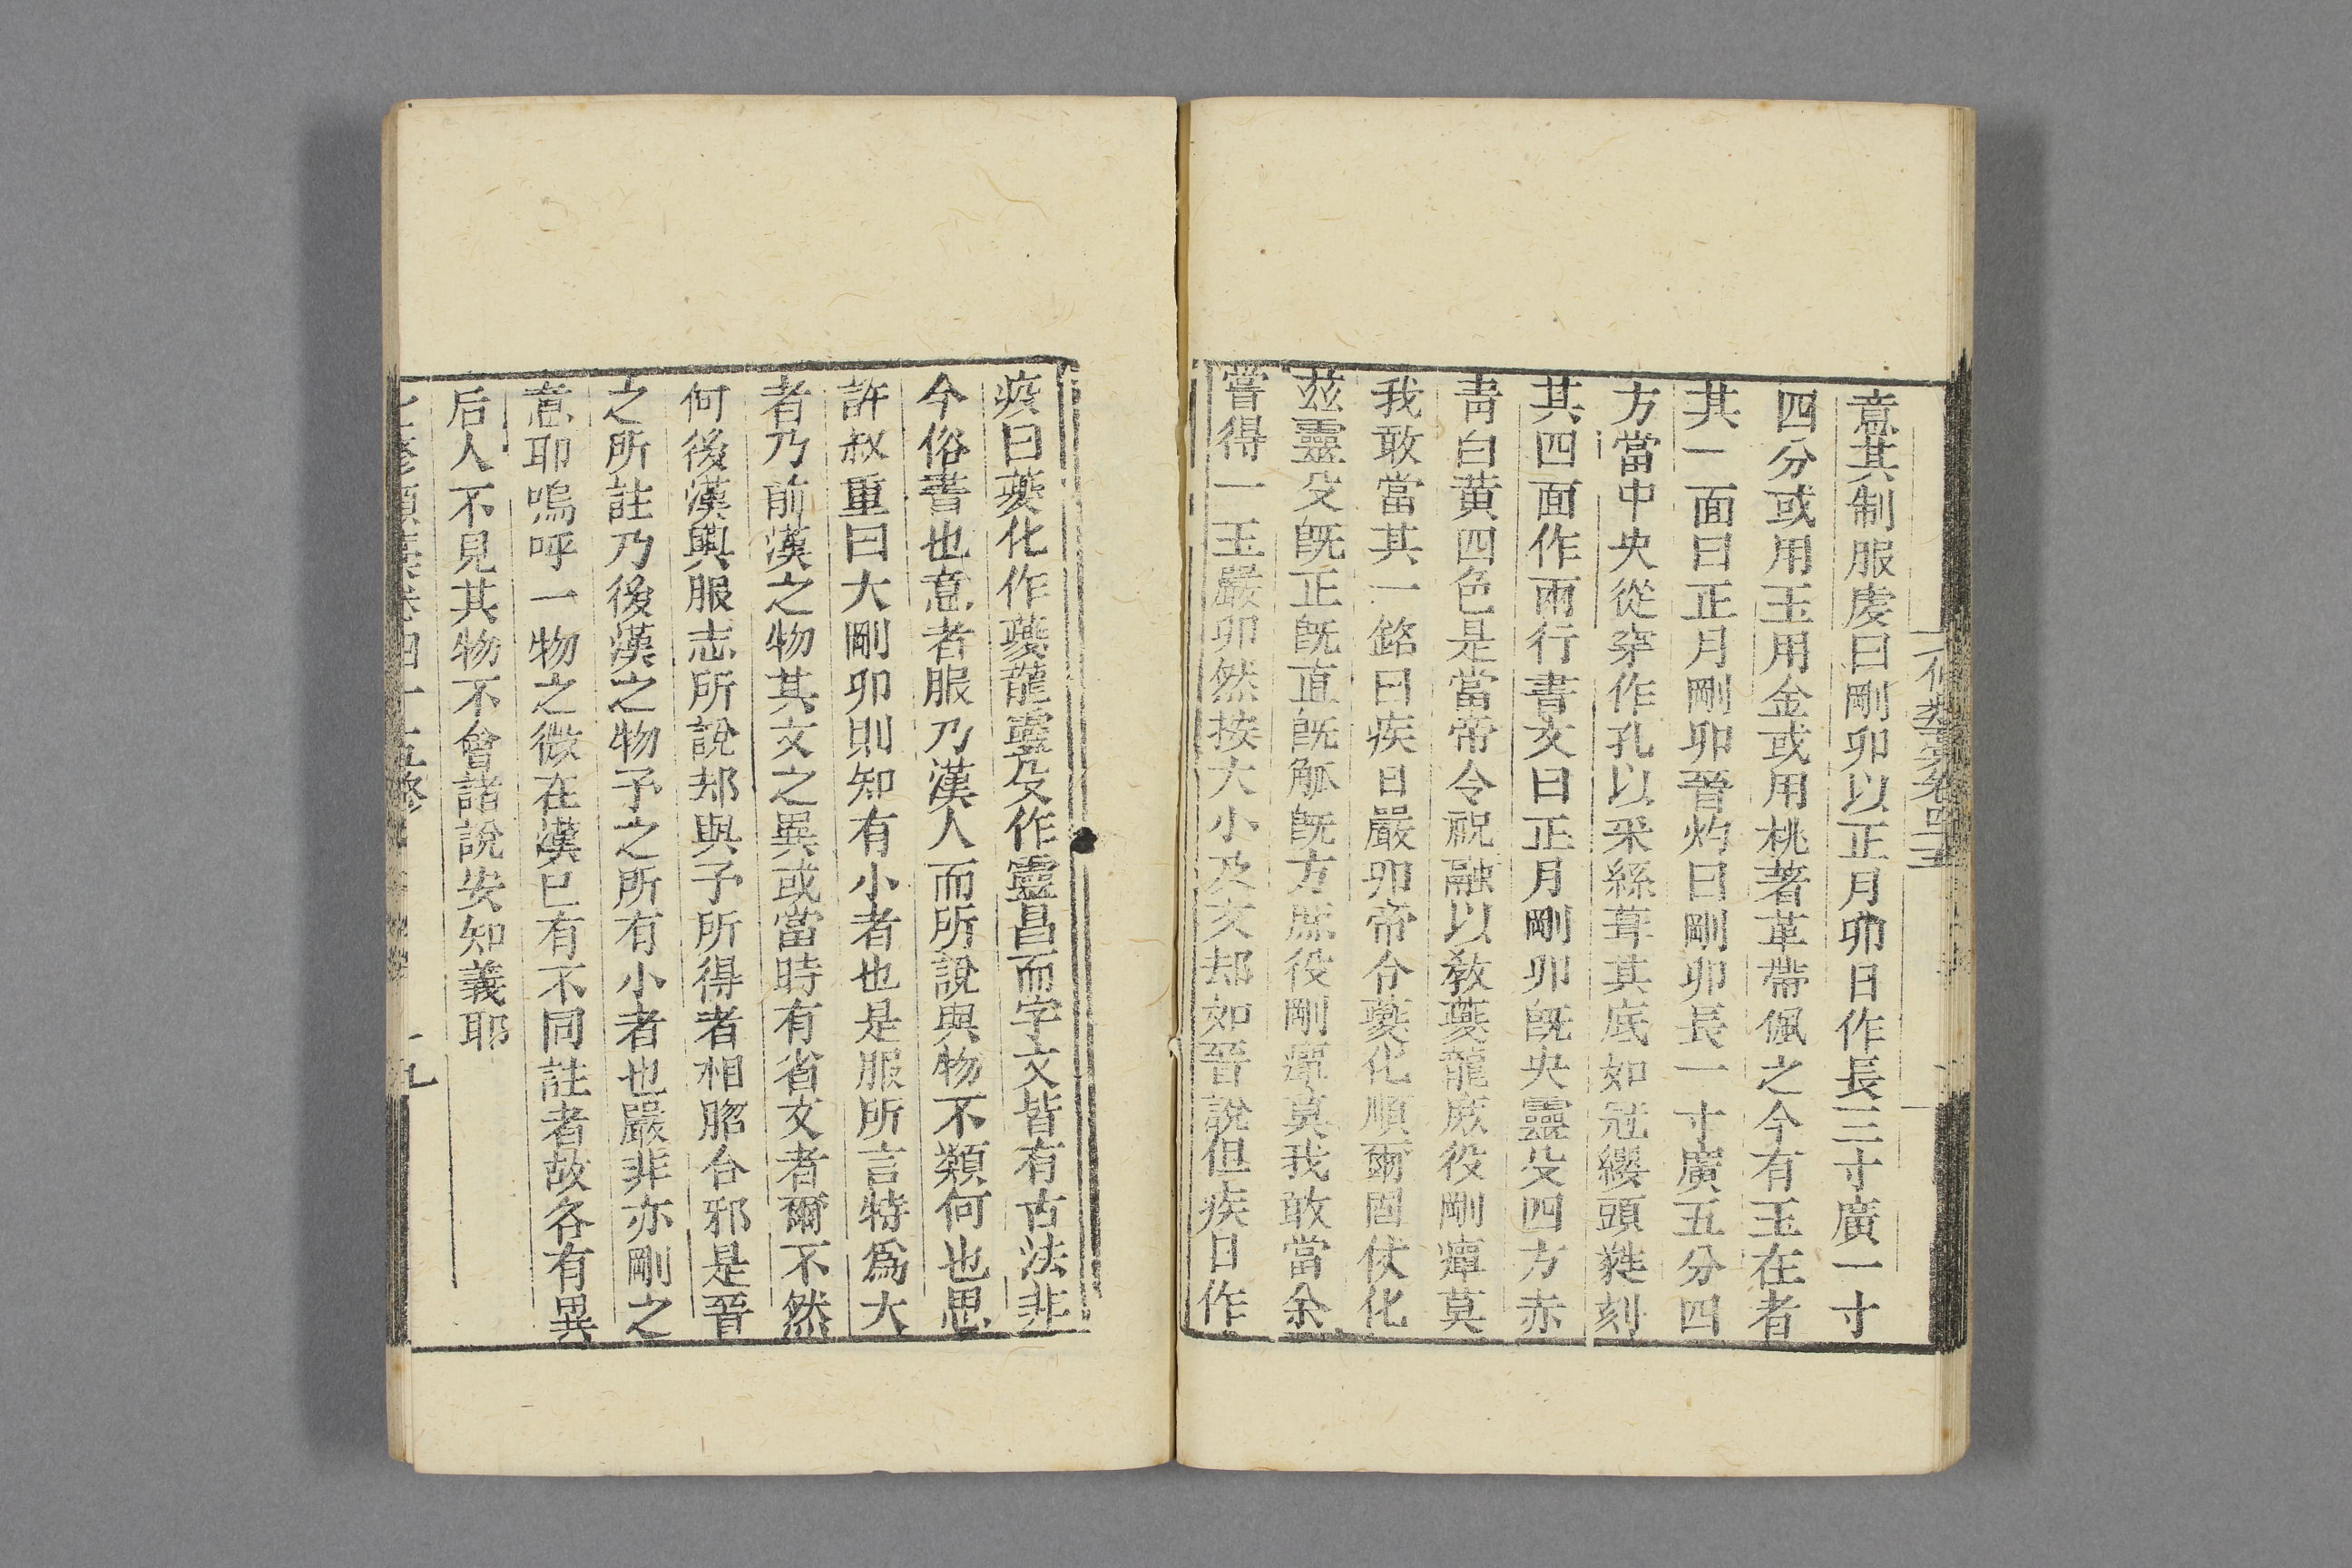 意其制服虔曰剛卯以正月卯日作長三寸廣一寸
四分或用玉用金或用桃著革帶佩之今有玉在者
其一面曰正月剛卯晉灼曰剛卯長一寸廣五分四
方當中央從穿作孔以采絲葺其底如冠纓頭蕤刻
其四面作兩行書文曰正月剛卯旣央靈殳四方赤
靑白黄四色是當帝令祝融以敎夔龍庶役剛癉莫
我敢當其一銘曰疾日嚴卯帝令夔化順爾固伏化
茲靈殳旣正旣直旣觚旣方庶役剛癉莫我敢當余
嘗得一玉嚴卯然按大小及文却如晉說但疾日作
疾曰夔化作夔龍靈殳作靈昌而字文皆有古法非
今俗書也意者服乃漢人而所說與物不類何也思
許叔重曰大剛卯則知有小者也是服所言特爲大
者乃前漢之物其文之異或當時有省文者爾不然
何後漢輿服志所說却與予所得者相脗合邪是晉
之所註乃後漢之物予之所有小者也嚴非亦剛之
意耶嗚呼一物之微在漢已有不同註者故各有異
后人不見其物不會諸說安知義耶